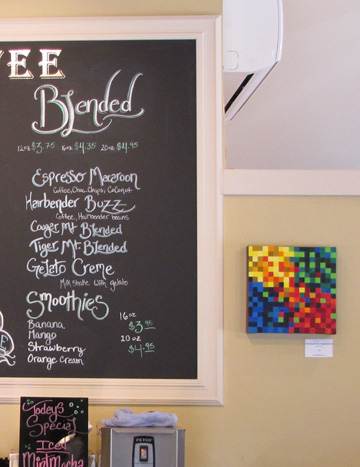 EE
Blended
12oz $3.75 16oz $4.35 20oz $4.95
Espresso Macaroon
Coffee, Choc. Chips, Coconut
Hairbender Buzz
Coffee, Hairbender beans
Cougar Mt. Blended
Tiger Mt. Blended
Gelato Creme
Milkshake with gelato
Smoothies
Banana
Mango
Strawberry
Orange Cream
16 oz
$3.95
20 oz
$4.95
Today's
Special
Iced
Mint Mocha